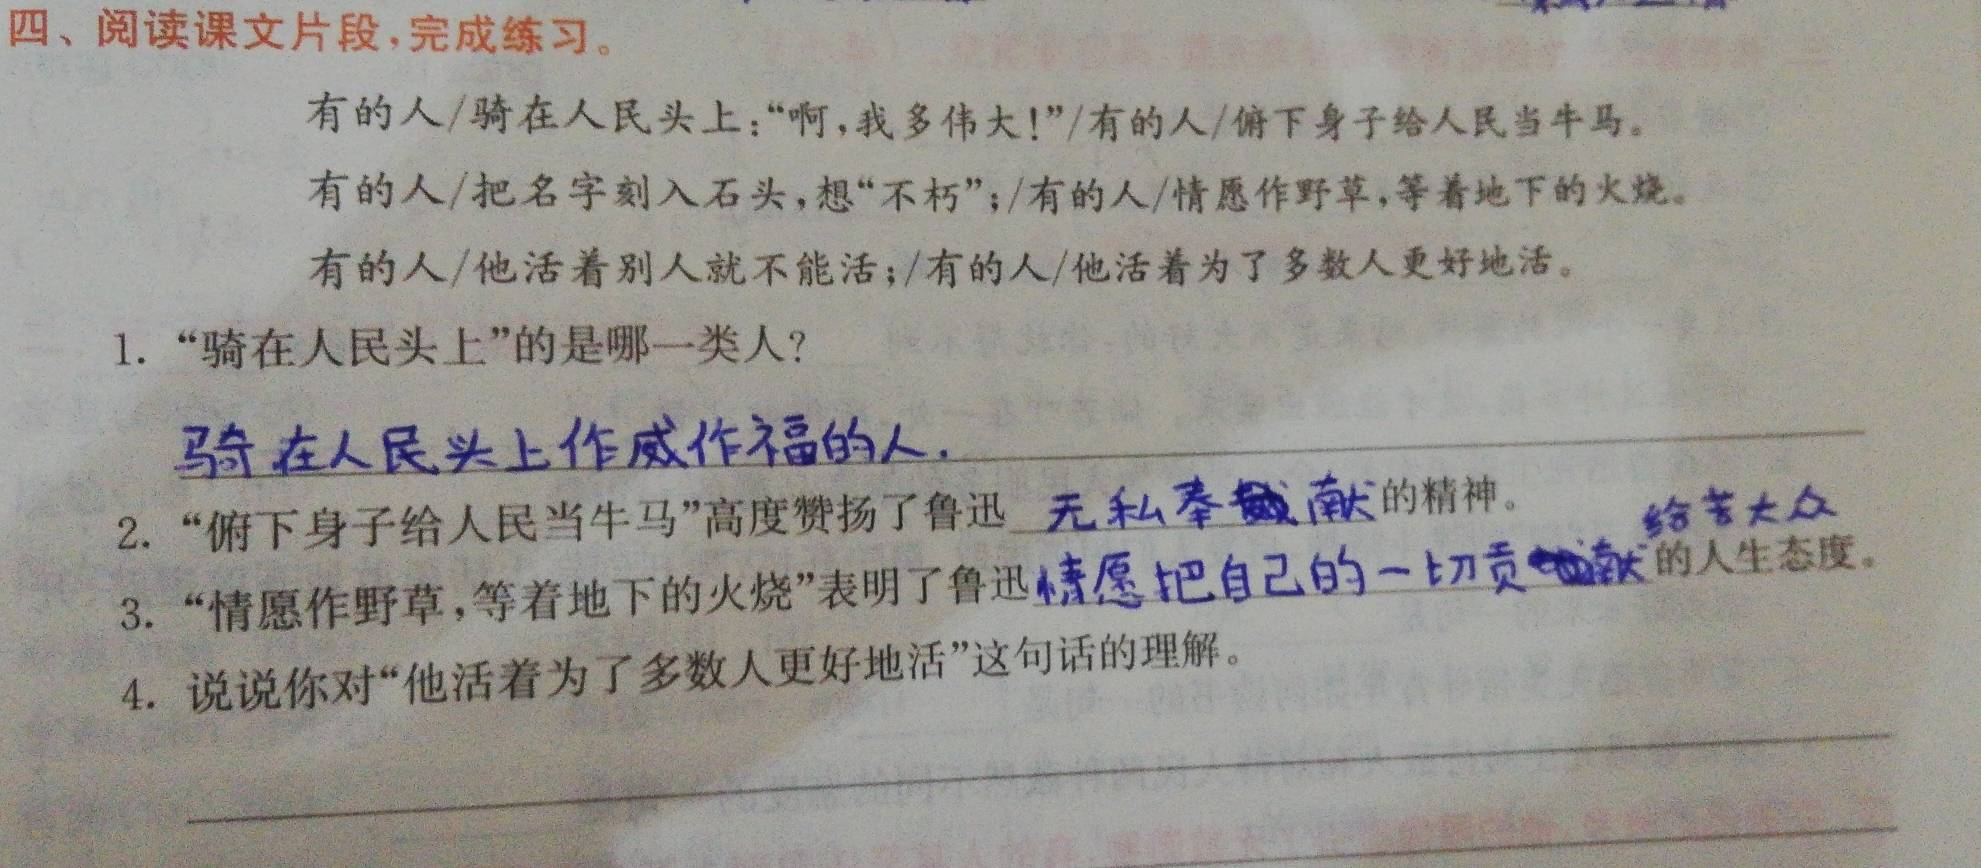 四、阅读课文片段,完成练习。
有的人/骑在人民头上:“啊,我多伟大!”/有的人/俯下身子给人民当牛马。
有的人/把名字刻入石头,想“不朽”;/有的人/情愿作野草,等着地下的火烧。
有的人/他活着别人就不能活;/有的人/他活着为了多数人更好地活。
1. “骑在人民头上”的是哪一类人?
骑在人民头上作威作福的人.
2. “俯下身子给人民当牛马”高度赞扬了鲁迅 无私奉献的精神。
给苦大众
3. “情愿作野草,等着地下的火烧”表明了鲁迅情愿把自己的一切贡献的人生态度。
4. 说说你对“他活着为了多数人更好地活”这句话的理解。